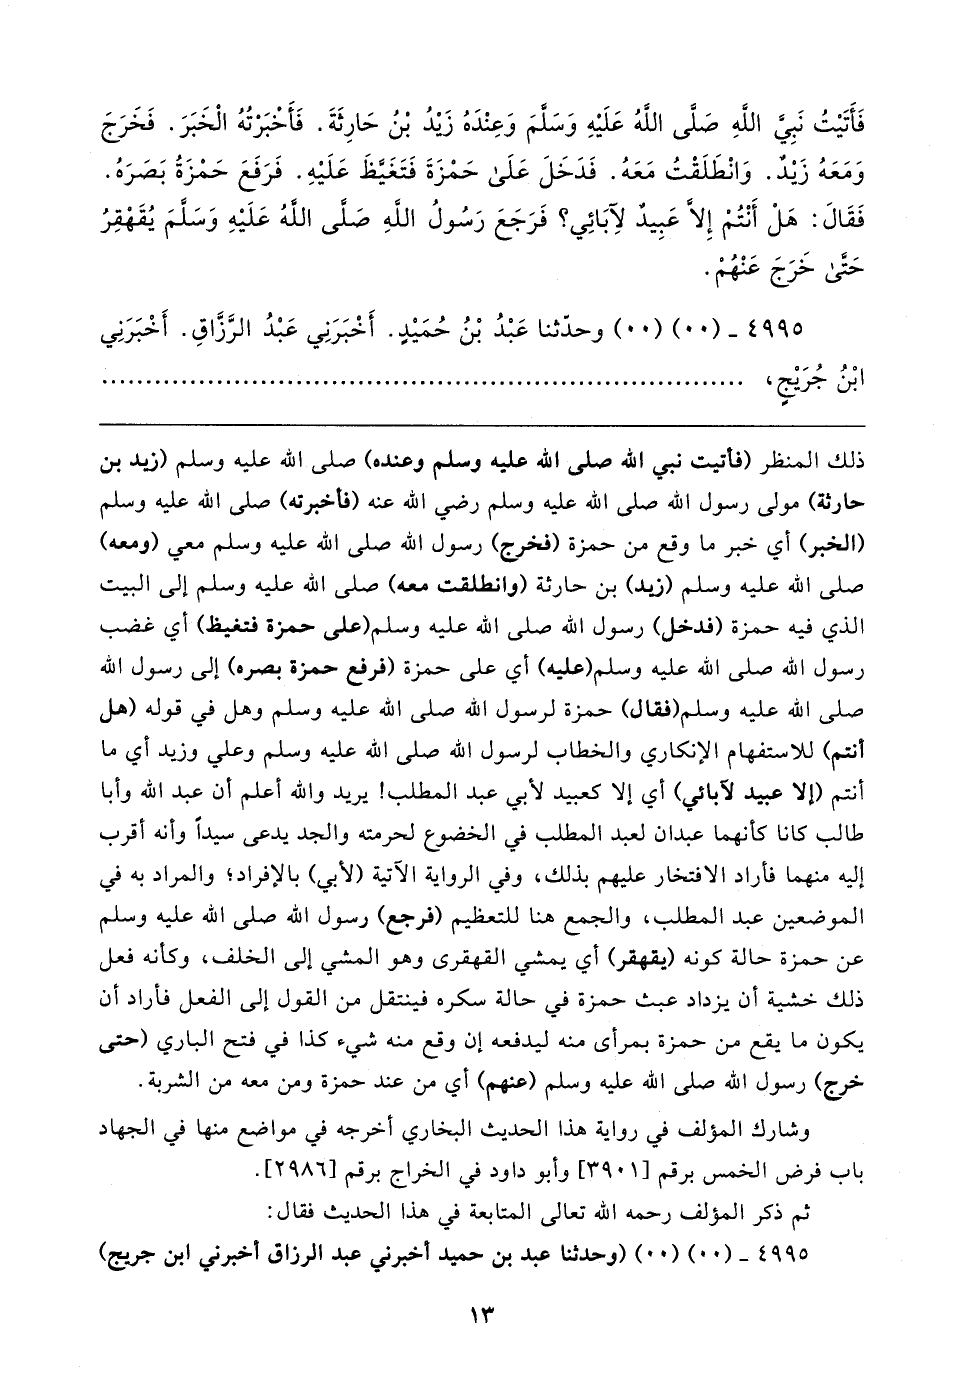 فَأَتَيْتُ نَبِيَّ اللَّهِ صَلَّى اللَّهُ عَلَيْهِ وَسَلَّمَ وَعِنْدَهُ زَيْدُ بْنُ حَارِثَةَ. فَأَخْبَرْتُهُ الْخَبَرَ. فَخَرَجَ
وَمَعَهُ زَيْدٌ. وَانْطَلَقْتُ مَعَهُ. فَدَخَلَ عَلَىٰ حَمْزَةَ فَتَغَيَّظَ عَلَيْهِ. فَرَفَعَ حَمْزَةُ بَصَرَهُ.
فَقَالَ: هَلْ أَنْتُمْ إِلاَّ عَبِيدٌ لِآبَائِي؟ فَرَجَعَ رَسُولُ اللَّهِ صَلَّى اللَّهُ عَلَيْهِ وَسَلَّمَ يُقَهْقِرُ
حَتَّىٰ خَرَجَ عَنْهُمْ.
٤٩٩٥ ـ (٠٠) (٠٠) وحدّثنا عَبْدُ بْنُ حُمَيْدٍ. أَخْبَرَنِي عَبْدُ الرَّزَّاقِ. أَخْبَرَنِي
ابْنُ جُرَيْجٍ، ......................................................................
ذلك المنظر (فأتيت نبي الله صلى الله عليه وسلم وعنده) صلى الله عليه وسلم (زيد بن
حارثة) مولى رسول الله صلى الله عليه وسلم رضي الله عنه (فأخبرته) صلى الله عليه وسلم
(الخبر) أي خبر ما وقع من حمزة (فخرج) رسول الله صلى الله عليه وسلم معي (ومعه)
صلى الله عليه وسلم (زيد) بن حارثة (وانطلقت معه) صلى الله عليه وسلم إلى البيت
الذي فيه حمزة (فدخل) رسول الله صلى الله عليه وسلم(على حمزة فتغيظ) أي غضب
رسول الله صلى الله عليه وسلم(عليه) أي على حمزة (فرفع حمزة بصره) إلى رسول الله
صلى الله عليه وسلم(فقال) حمزة لرسول الله صلى الله عليه وسلم وهل في قوله (هل
أنتم) للاستفهام الإنكاري والخطاب لرسول الله صلى الله عليه وسلم وعلي وزيد أي ما
أنتم (إلا عبيد لآبائي) أي إلا كعبيد لأبي عبد المطلب! يريد والله أعلم أن عبد الله وأبا
طالب كانا كأنهما عبدان لعبد المطلب في الخضوع لحرمته والجد يدعى سيداً وأنه أقرب
إليه منهما فأراد الافتخار عليهم بذلك، وفي الرواية الآتية (لأبي) بالإفراد؛ والمراد به في
الموضعين عبد المطلب، والجمع هنا للتعظيم (فرجع) رسول الله صلى الله عليه وسلم
عن حمزة حالة كونه (يقهقر) أي يمشي القهقرى وهو المشي إلى الخلف، وكأنه فعل
ذلك خشية أن يزداد عبث حمزة في حالة سكره فينتقل من القول إلى الفعل فأراد أن
يكون ما يقع من حمزة بمرأى منه ليدفعه إن وقع منه شيء كذا في فتح الباري (حتى
خرج) رسول الله صلى الله عليه وسلم (عنهم) أي من عند حمزة ومن معه من الشربة.
وشارك المؤلف في رواية هذا الحديث البخاري أخرجه في مواضع منها في الجهاد
باب فرض الخمس برقم [٣٩٠١] وأبو داود في الخراج برقم [٢٩٨٦].
ثم ذكر المؤلف رحمه الله تعالى المتابعة في هذا الحديث فقال:
٤٩٩٥ ـ (٠٠) (٠٠) (وحدثنا عبد بن حميد أخبرني عبد الرزاق أخبرني ابن جريج)
١٣